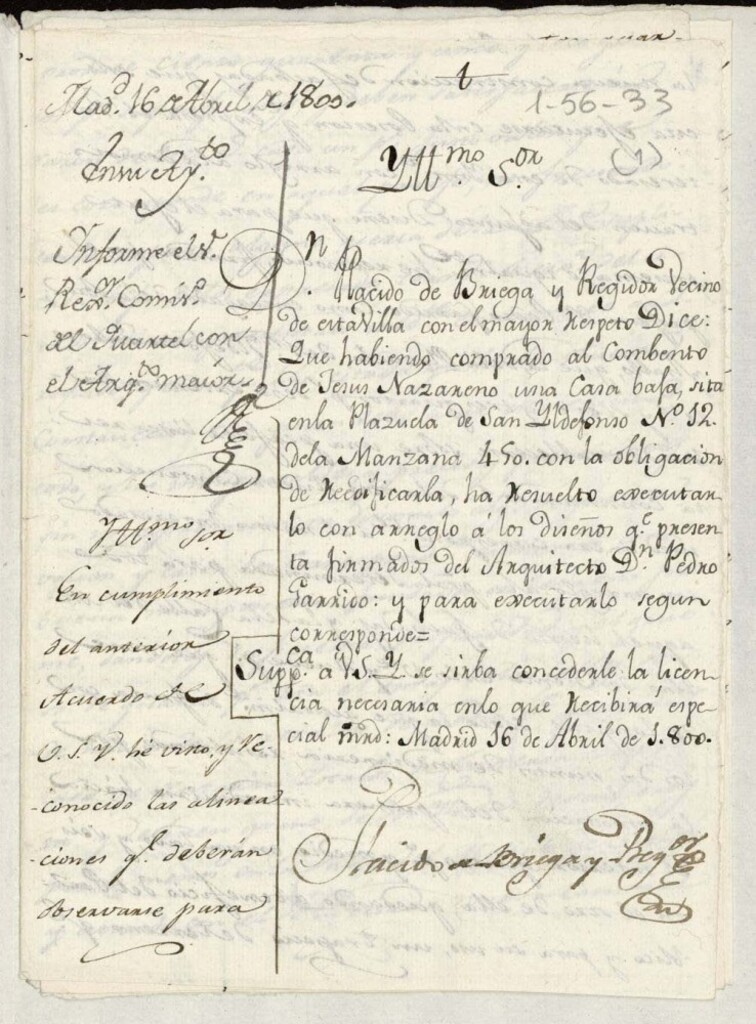 t
1-56-33
(1)
Mad.d 16 de Abril de 1800.
En su Ay.to
Informe el S.r
Rex.or Comis.o
del Quartel con
el Arq.to maior
Yll.mo S.or
D.n Placido de Briega y Regidor Vecino
de esta Villa con el mayor Respeto Dice:
Que habiendo comprado al Combento
de Jesus Nazareno una Casa baja, sita
en la Plazuela de San Yldefonso N.o 12.
dela Manzana 450. con la obligacion
de Redificarla, ha Resuelto executar
lo con arreglo á los diseños q.e presen
ta firmados del Arquitecto D.n Pedro
Garrido: y para executarlo segun
corresponde=
Supp.ca a V.S.Y. se sirba concederle la licen
cia necesaria enlo que Recibirá espe
cial mrd: Madrid 16 de Abril de 1.800.
Placido de Briega y Reg.or
Yll.mo Sor
En cumplimiento
del anterior
Acuerdo de
V.S.Y. hé visto, y Re-
conocido las alinea
ciones q.e deberán
observarse para